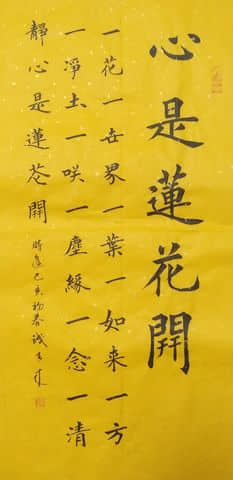 心是蓮花開
一花一世界一葉一如来一方
一淨土一咲一塵緣一念一清
靜心是蓮花開
己亥初春